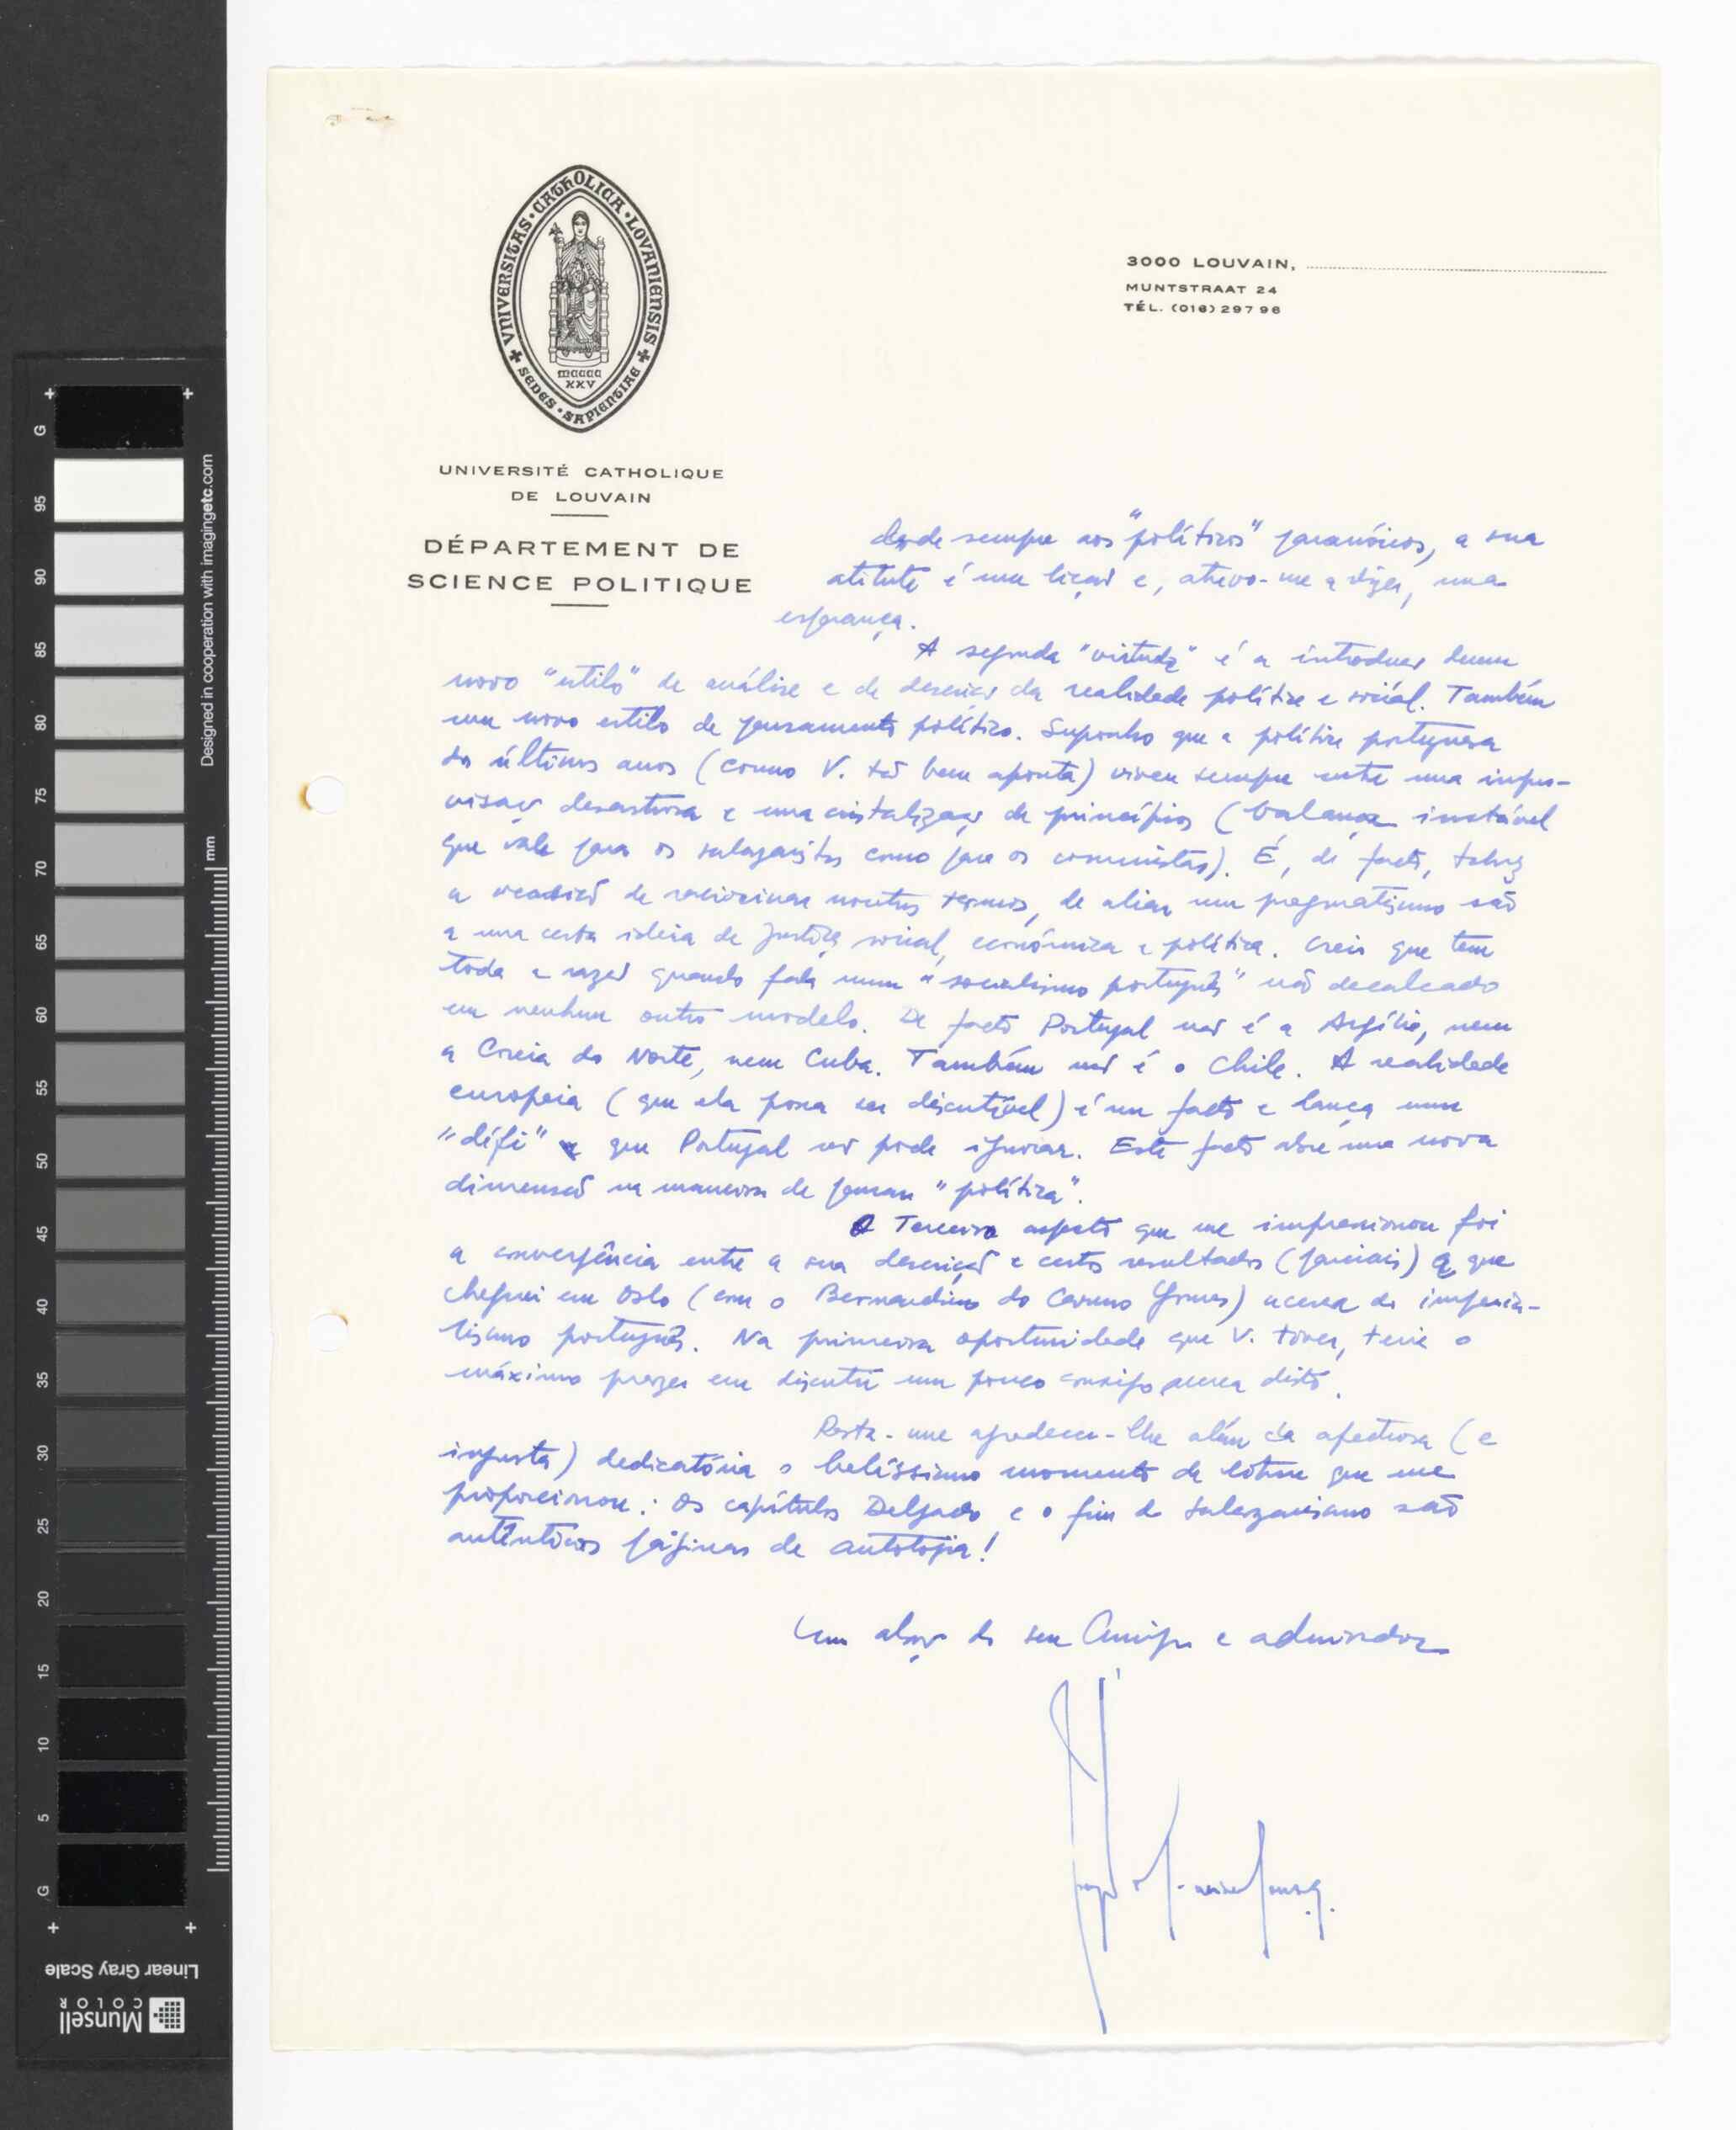 UNIVERSITAS · CATHOLICA · LOVANIENSIS
SEDES · SAPIENTIAE
MCCCC
XXV
3000 LOUVAIN,
MUNTSTRAAT 24
TÉL. (016) 297 96
UNIVERSITÉ CATHOLIQUE
DE LOUVAIN
DÉPARTEMENT DE
SCIENCE POLITIQUE
desde sempre aos "políticos" paranóicos, a sua
atitute é uma lição e, atrevo-me a dizer, uma
esperança.
A segunda "virtude" é a introduzir dum
novo "estilo" de análise e de descrição da realidade política e social. Também
um novo estilo de pensamento político. Suponho que a política portuguesa
dos últimos anos (como V. tão bem aponta) viveu sempre entre uma impro-
visação desastrosa e uma cristalização de princípios (balança instável
que vale para os salazaristas como para os comunistas). É, de facto, talvez
a de raciocinar noutros termos, de aliar um pragmatismo são
a uma certa ideia de justiça social, económica e política. Creio que tem
toda a razão quando fala num "socialismo português" não decalcado
em nenhum outro modelo. De facto Portugal não é a Argélia, nem
a Coreia do Norte, nem Cuba. Também não é o Chile. A realidade
europeia (que ela possa ser discutível) é um facto e lança um
"défi" que Portugal não pode ignorar. Este facto abre uma nova
dimensão na maneira de pensar "política".
O Terceiro aspecto que me impressionou foi
a convergência entre a sua descrição e certos resultados (parciais) a que
cheguei em Oslo (com o Bernardino do Carmo Gomes) acerca do imperia-
lismo português. Na primeira oportunidade que V. tiver, teria o
máximo prazer em discutir um pouco consigo acerca disto.
Resta-me agradecer-lhe além da afectuosa (e
injusta) dedicatória o belíssimo momento de leitura que me
proporcionou: Os capítulos Delgado e o fim do salazarismo são
autênticas páginas de antologia!
Um abraço do seu Amigo e admirador
Designed in cooperation with imagingetc.com
mm
G 95 90 85 80 75 70 65 60 55 50 45 40 35 30 25 20 15 10 5 G
Linear Gray Scale
Munsell
COLOR